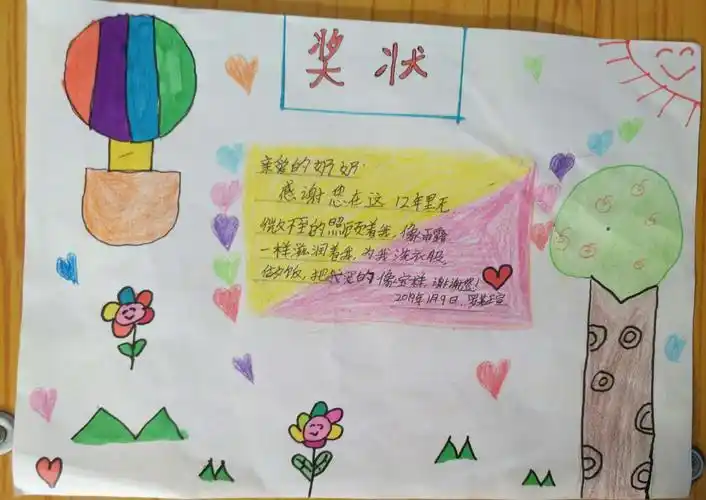 奖状
亲爱的奶奶:
感谢您在这12年里无
微不至的照顾着我,像雨露
一样滋润着我,为我洗衣服,
做饭,把我的像宝样,谢谢您!
2019年1月9日